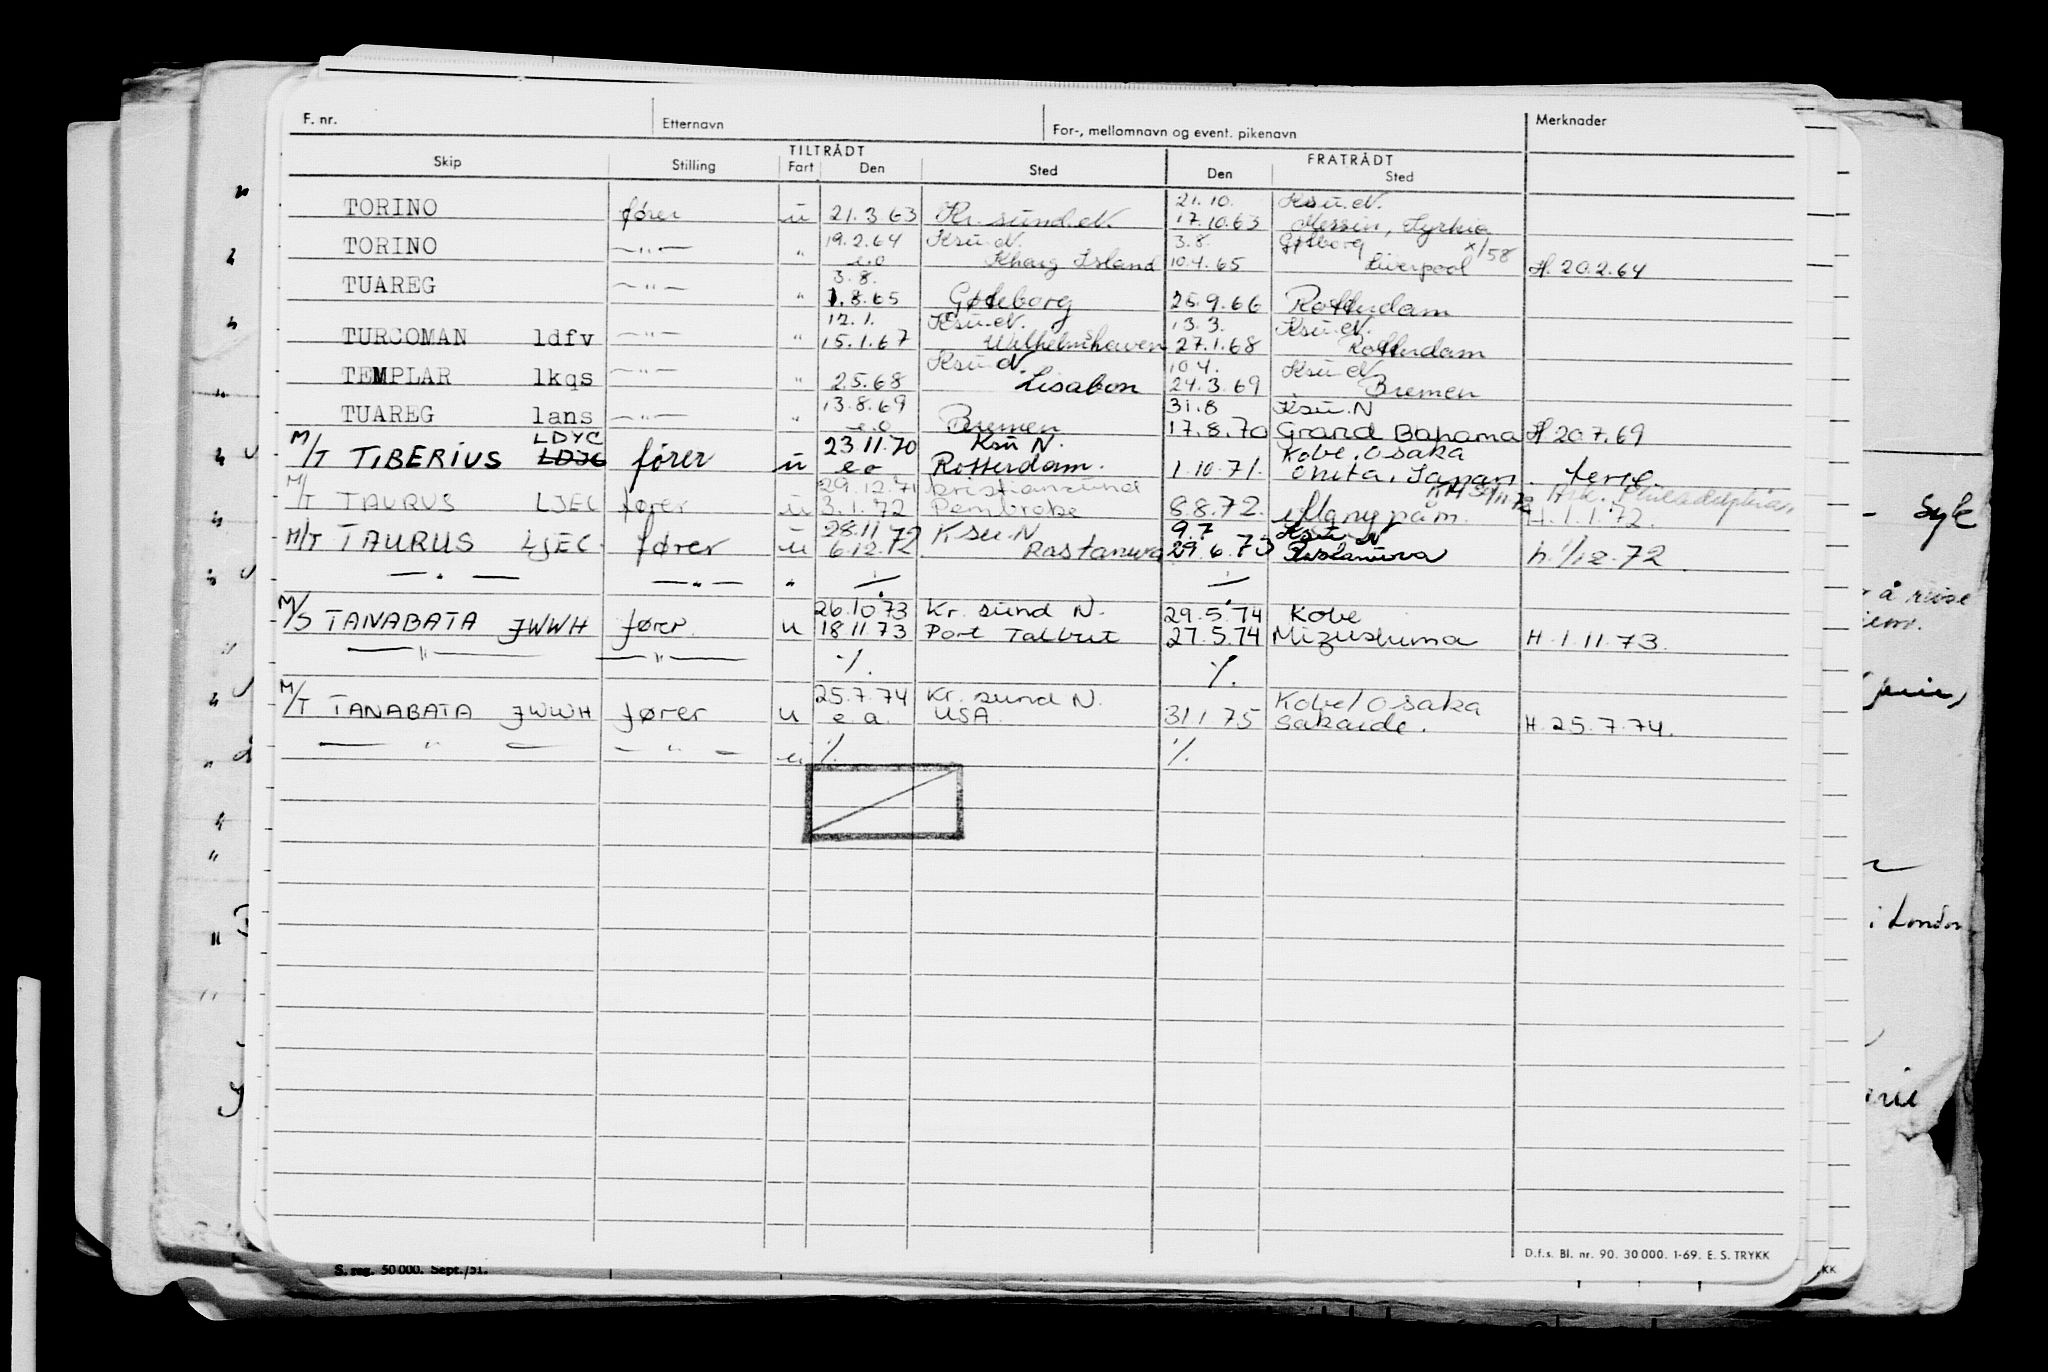 F. nr. Etternavn For-, mellomnavn og event. pikenavn Merknader
TILTRÅDT FRATRÅDT
Skip Stilling Fart Den Sted Den Sted
21.10. Ksu.N.
TORINO fører u 21.3.63 Kr.sund.N. 17.10.63 Messin,
19.2.64 Ksu.N. 3.8. Gøteborg x/58
TORINO —"— " e.o Kharg Island 10.4.65 Liverpool H. 20.2.64
3.8.
TUAREG —"— " 1.8.65 Gøteborg 25.9.66 Rotterdam
12.1. Ksu.N. 13.3. Ksu.N.
TURCOMAN ldfv —"— " 15.1.67 Wilhelmshaven 27.1.68 Rotterdam
Ksu.N. 10.4. Ksu.N
TEMPLAR lkqs —"— " 25.68 Lisabon 24.3.69 Bremen
13.8.69 31.8 Ksu.N
TUAREG lans —"— " e.o Bremen 17.8.70 Grand Bahama H 20.7.69
LDYC 23.11.70 Ksu N. Kobe, Osaka
M/T TIBERIUS LDJG fører u e o Rotterdam. 1.10.71. Onita, Japan. ferie.
29.12.71 Kristiansund Philadelphia
M/T TAURUS LJEC fører u 3.1.72 Pembroke 8.8.72. H. 1.1.72.
28.11.72 Ksu.N 9.7 Ksu N
M/T TAURUS LJEC. fører u 6.12.72 Rastanura 29.6.73 Rastanura h. 1/12.72.
—"— —"— " ./. ./.
26.10.73 Kr.sund N. 29.5.74 Kobe
M/S TANABATA JWWH fører. u 18.11.73 Port Talbut 27.5.74 Mizushima H.1.11.73.
—"— —"— ./. ./.
25.7.74 Kr.sund N. Kobe/Osaka
M/T TANABATA JWWH fører u e.a. USA. 31.1.75 Sakaide. H.25.7.74.
—"— —"— u ./. ./.
D.f.s. Bl. nr. 90. 30 000. 1-69. E. S. TRYKK
S. reg. 50 000. Sept./51.
Syk
å reise
i London